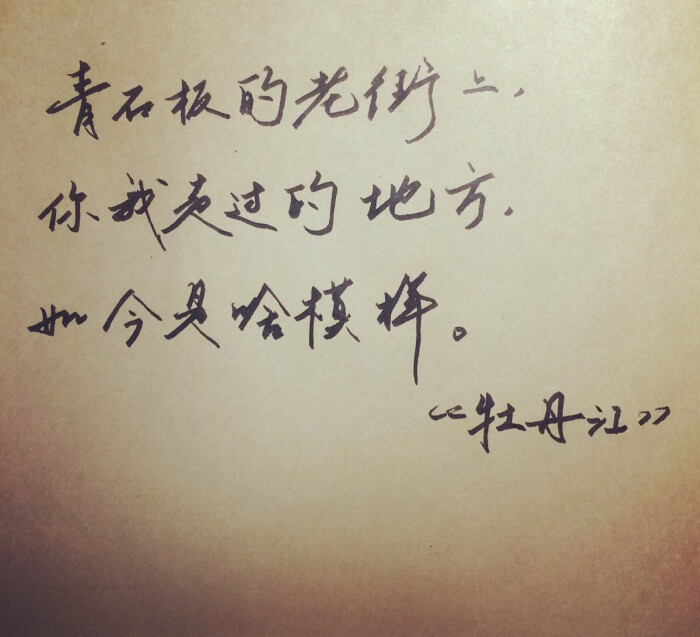 青石板的老街上,
你我走过的地方,
如今是啥模样。
《牡丹江》